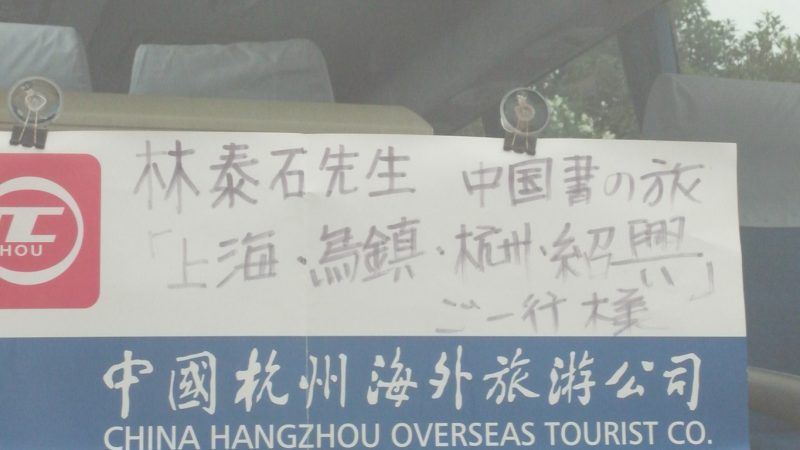 林泰石先生 中国書の旅
「上海・烏鎮・杭州・紹興」
ご一行様
TC
ZHOU
中國杭州海外旅游公司
CHINA HANGZHOU OVERSEAS TOURIST CO.